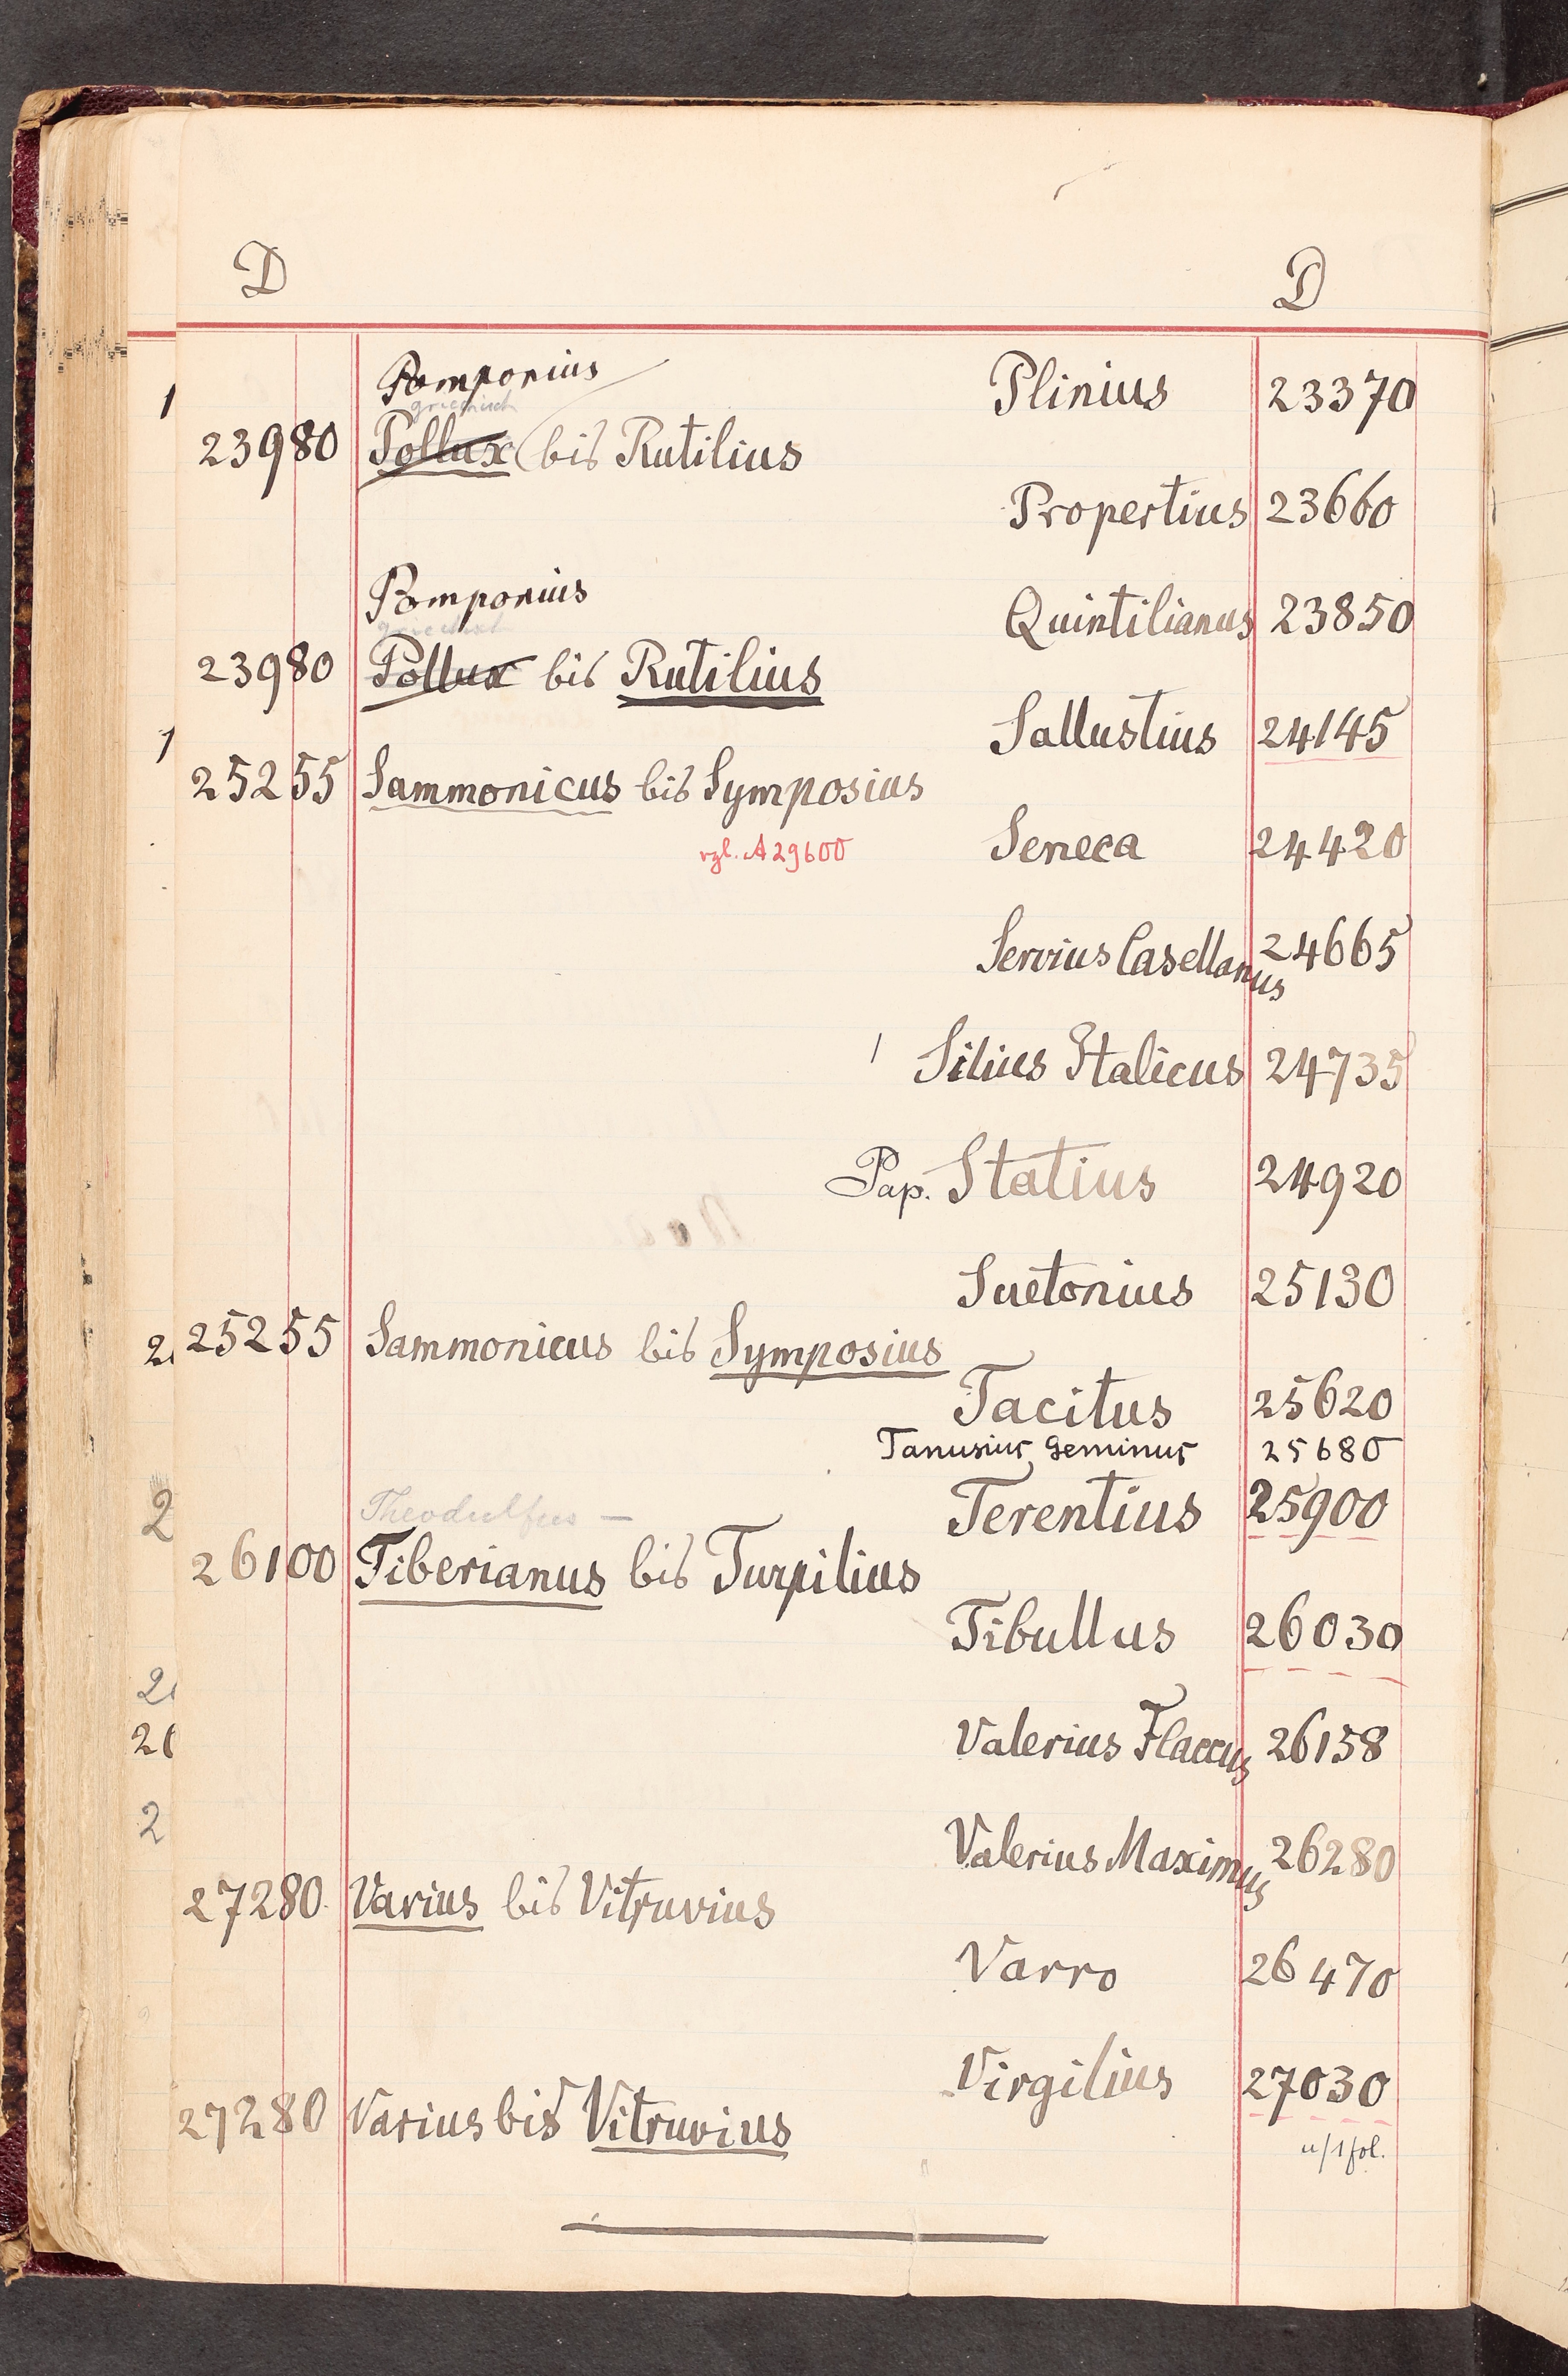 D D
Pomponius Plinius 23370
griechisch
23980 Pollux bis Rutilius
Propertius 23660
Pomponius Quintilianus 23850
griechisch
23980 Pollux bis Rutilius
Sallustius 24145
25255 Sammonicus bis Symposius
vgl. A 29600 Seneca 24420
Servius Casellanus 24665
Silius Italicus 24735
Pap. Statius 24920
Suetonius 25130
25255 Sammonicus bis Symposius
Tacitus 25620
Tanusius Geminus 25680
Theodulfus — Terentius 25900
26100 Tiberianus bis Turpilius
Tibullus 26030
Valerius Flaccus 26158
Valerius Maximus 26280
27280 Varius bis Vitruvius
Varro 26470
Virgilius 27030
27280 Varius bis Vitruvius
u/1 fol.